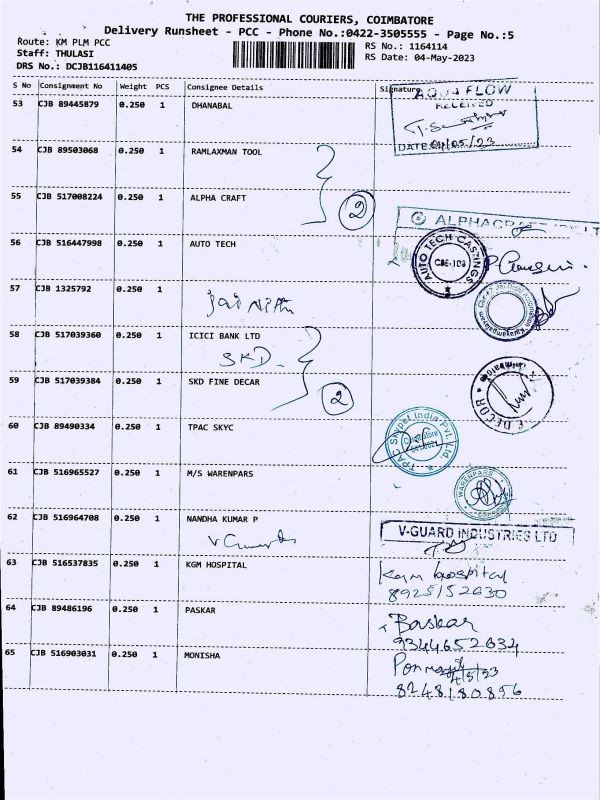 THE PROFESSIONAL COURIERS, COIMBATORE
Delivery Runsheet - PCC - Phone No.:0422-3505555 - Page No.:5
Route: KM PLM PCC
RS No.: 1164114
Staff: THULASI
RS Date: 04-May-2023
DRS No.: DCJB116411405
S No Consignment No Weight PCS Consignee Details Signature
AQUA FLOW
RECEIVED
DATE 04/05/23
53 CJB 89445879 0.250 1 DHANABAL
54 CJB 89503068 0.250 1 RAMLAXMAN TOOL
55 CJB 517008224 0.250 1 ALPHA CRAFT
2
ALPHACRAFT
56 CJB 516447998 0.250 1 AUTO TECH
AUTO TECH CASTINGS
CBE-103
57 CJB 1325792 0.250 1
58 CJB 517039360 0.250 1 ICICI BANK LTD
SKD
59 CJB 517039384 0.250 1 SKD FINE DECAR
2
DECOR
60 CJB 89490334 0.250 1 TPAC SKYC
TPAC Skypet India Pvt. Ltd
Coimbatore
61 CJB 516965527 0.250 1 M/S WARENPARS
WARENPARS
62 CJB 516964708 0.250 1 NANDHA KUMAR P
V Guards
V-GUARD INDUSTRIES LTD
63 CJB 516537835 0.250 1 KGM HOSPITAL
Kgm hospital
8925152630
64 CJB 89486196 0.250 1 PASKAR
Baskar
9344652634
65 CJB 516903031 0.250 1 MONISHA
4/5/23
8248180856